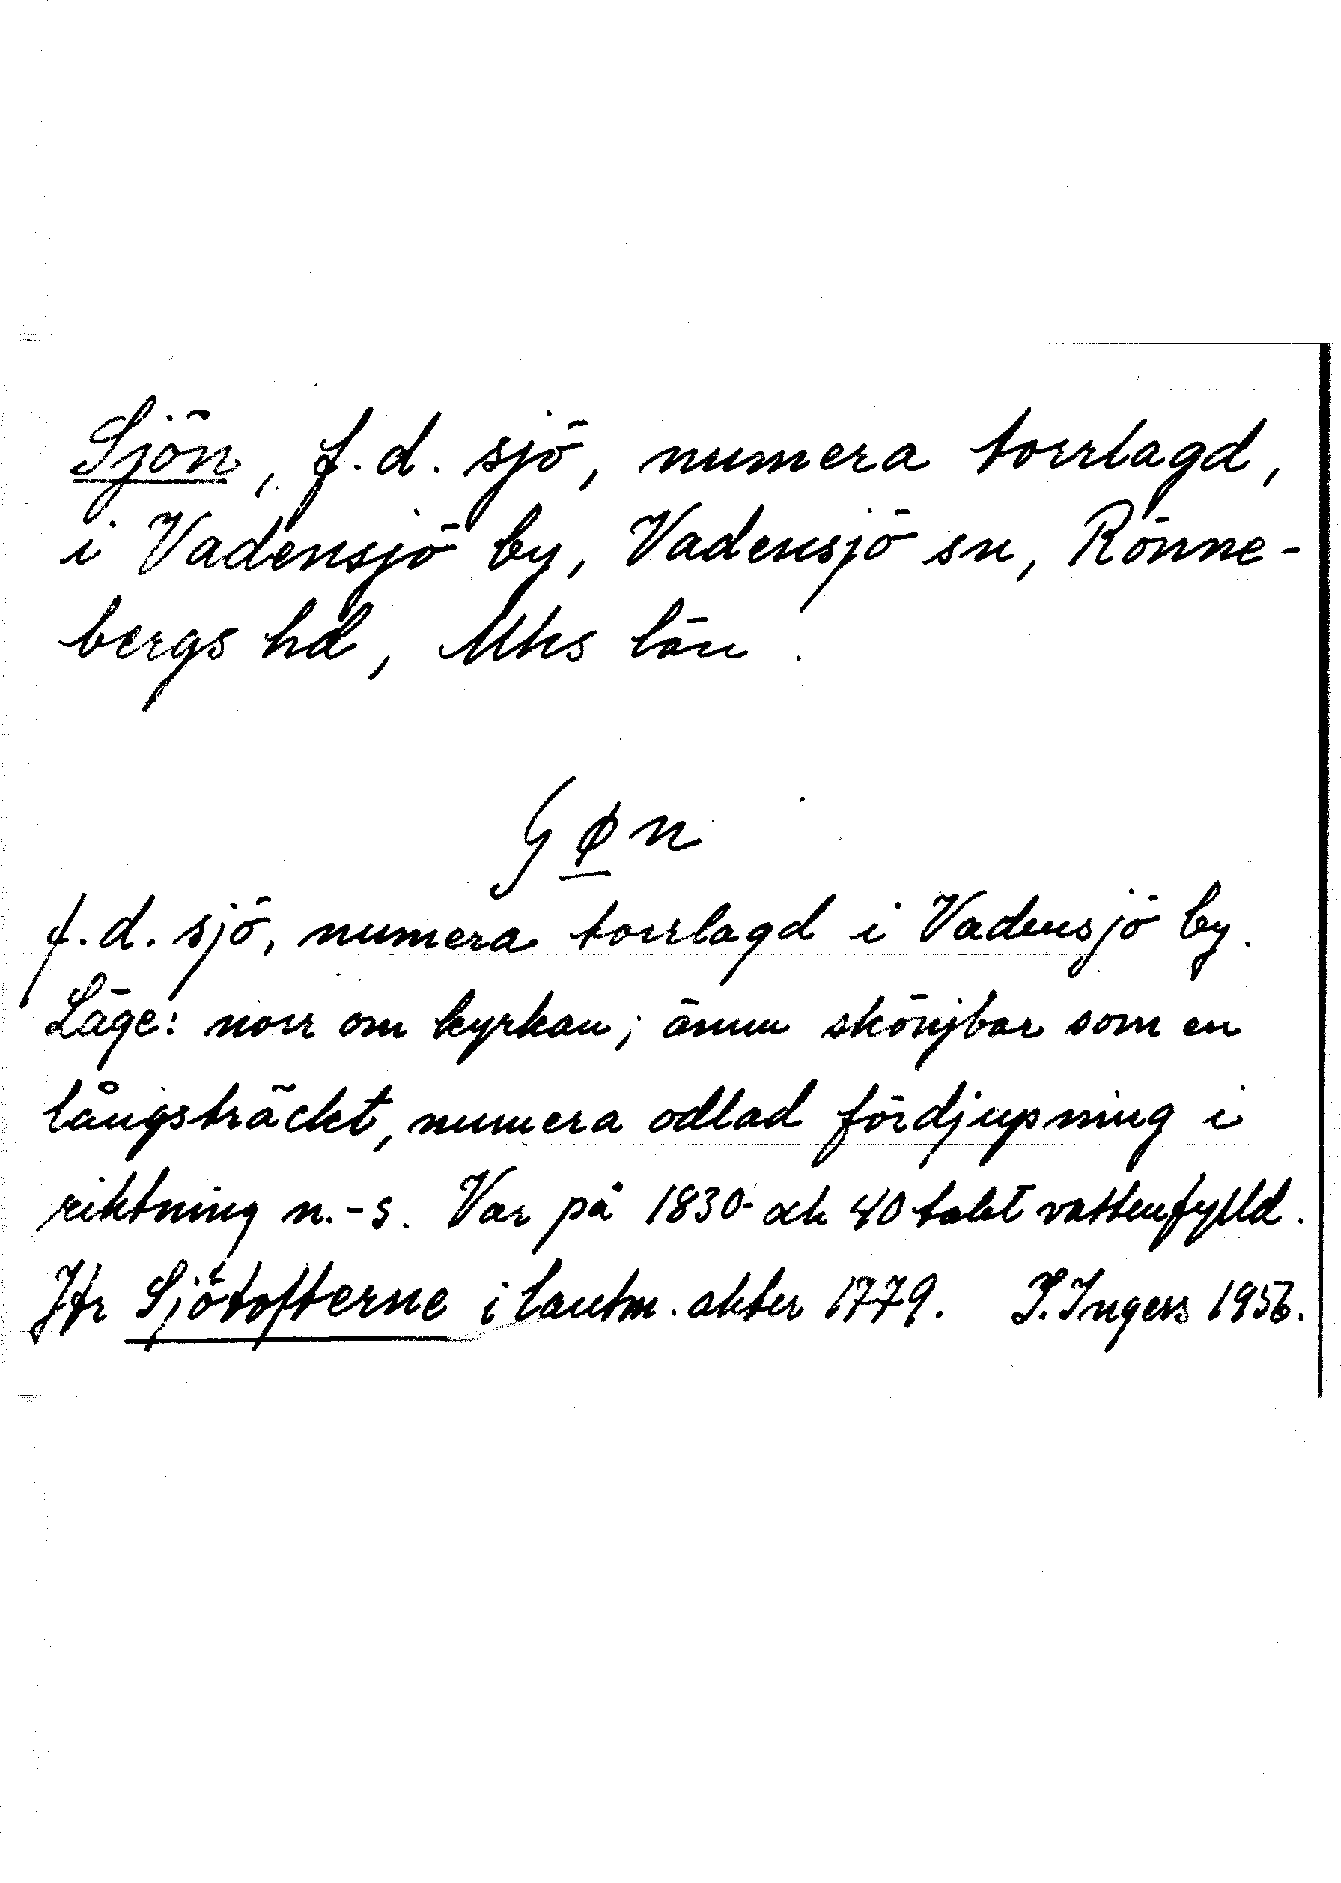 Sjön, f.d. sjö, numera torrlagd,
i Vadensjö by, Vadensjö sn, Rönne-
bergs hd, Mhs län.
ʃøn
f.d. sjö, numera torrlagd i Vadensjö by.
Läge: norr om kyrkan; ännu skönjbar som en
långsträckt, numera odlad fördjupning i
riktning n.-s. Var på 1830- och 40 talet vattenfylld.
Jfr Sjötofterne i lantm. akter 1779. I. Ingers 1956.